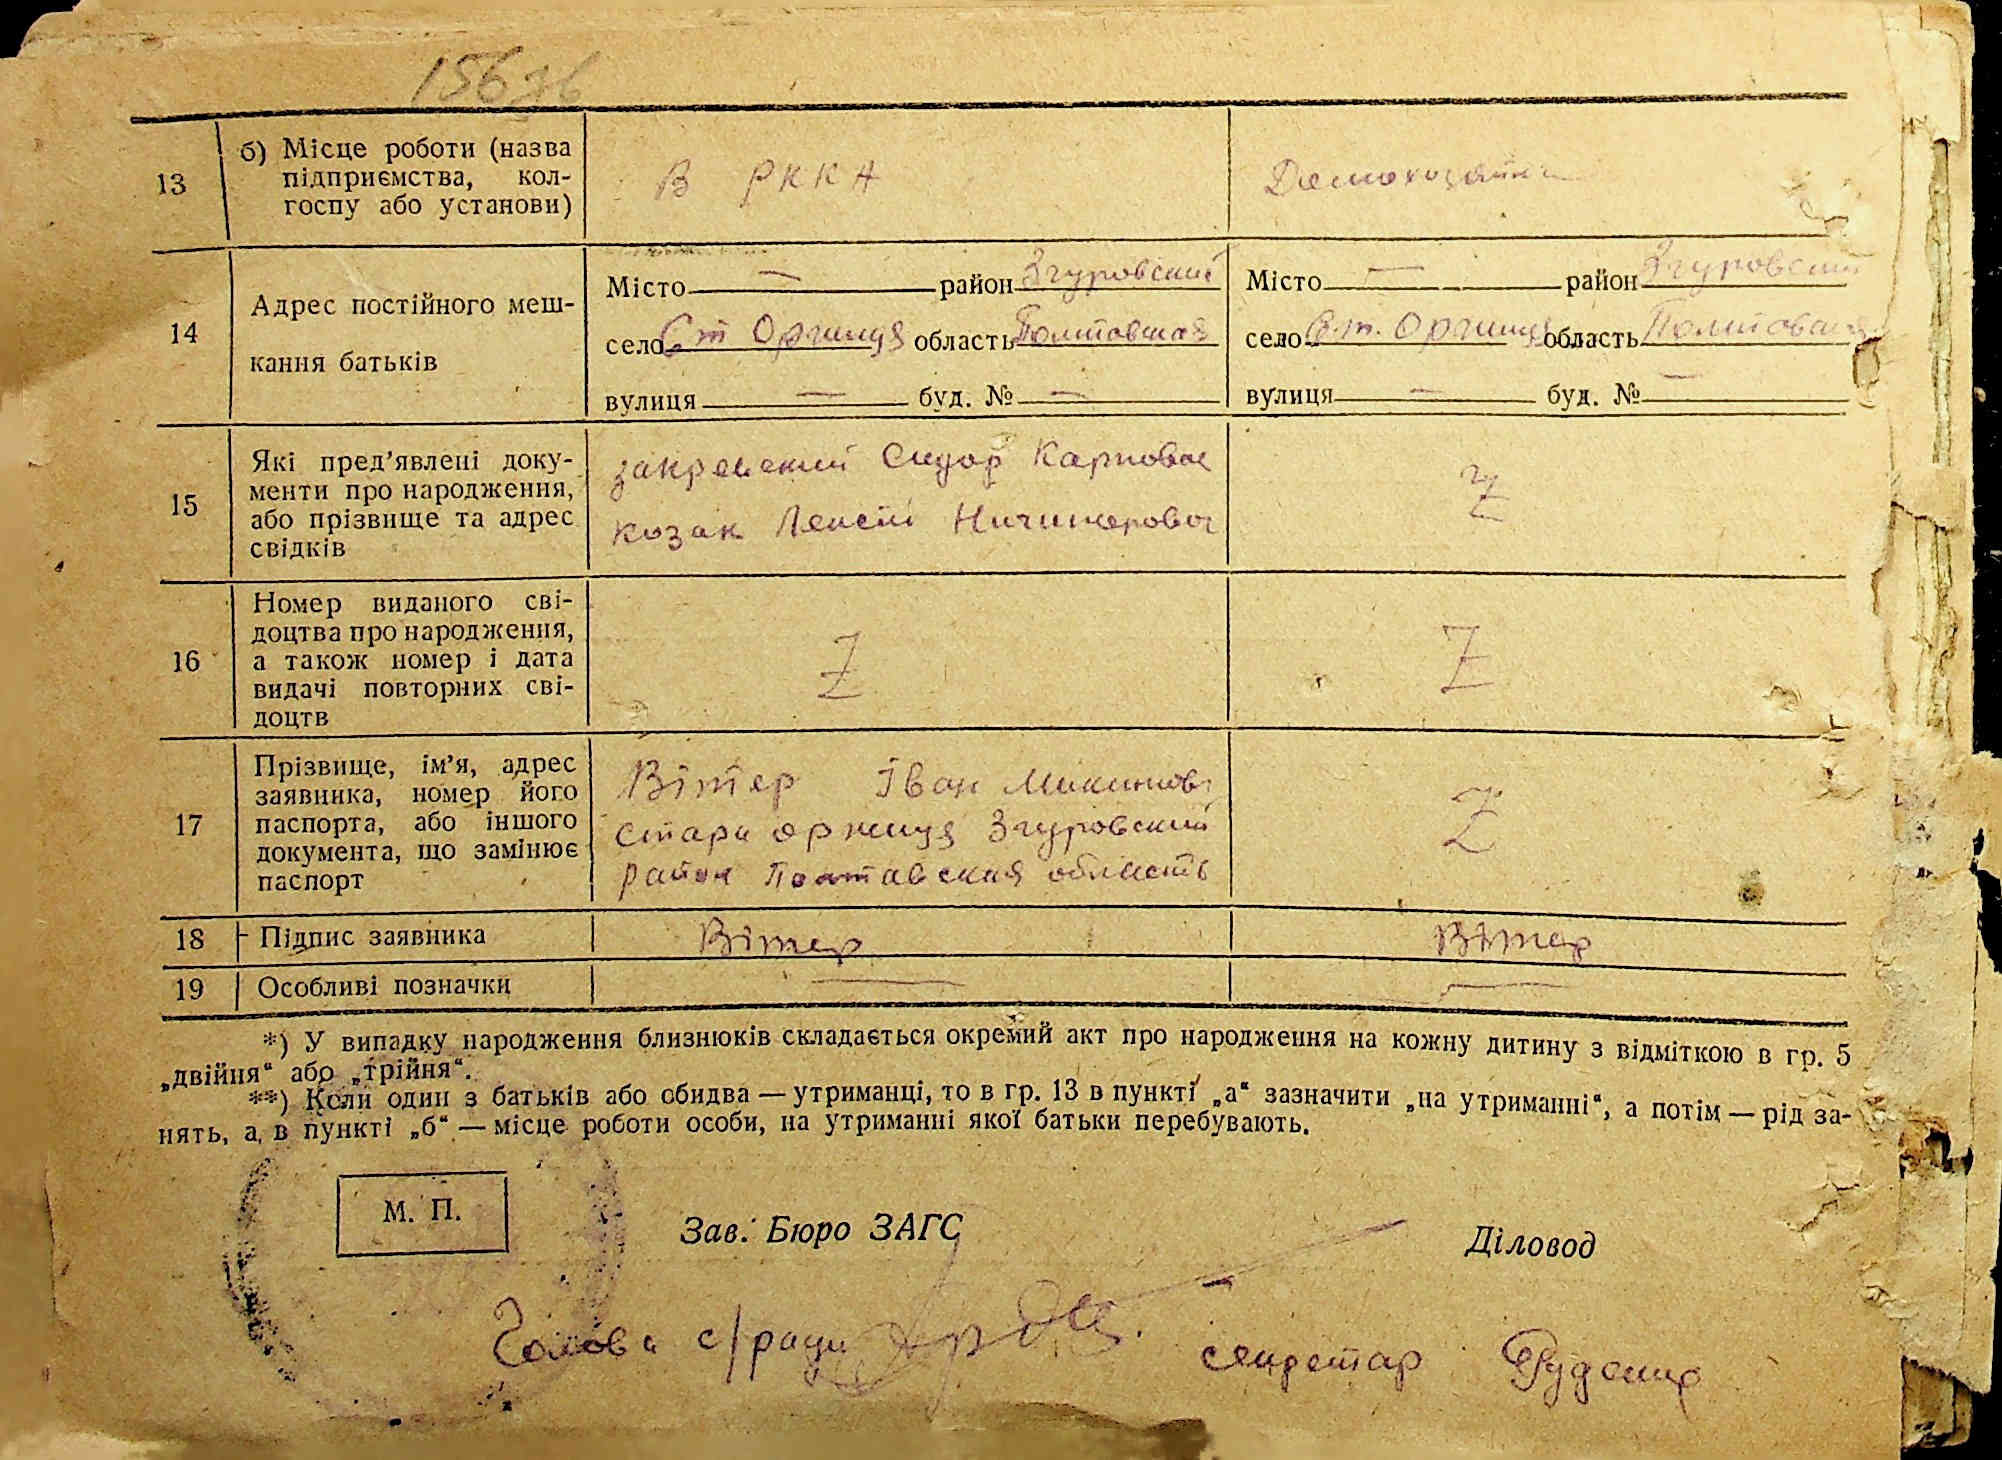 156 зв
13 б) Місце роботи (назва В РККА Домохозяйка
підприємства, кол-
госпу або установи)
14 Адрес постійного меш-
кання батьків
Місто — район Згуровский Місто — район Згуровский
село Ст Оржиця область Полтовская село Ст. Оржиця область Полтовская
вулиця — буд. № — вулиця — буд. № —
15 Які пред’явлені доку-
менти про народження,
або прізвище та адрес
свідків
закревский Сидор Карпович
козак Лексій Ничипорович
Z
16 Номер виданого сві-
доцтва про народження,
а також номер і дата
видачі повторних сві-
доцтв
Z Z
17 Прізвище, ім’я, адрес
заявника, номер його
паспорта, або іншого
документа, що замінює
паспорт
Вітер Іван
Стара оржиця Згуровский
район Полтавская область
Z
18 Підпис заявника Вітер Вітер
19 Особливі позначки — —
*) У випадку народження близнюків складається окремий акт про народження на кожну дитину з відміткою в гр. 5
„двійня“ або „трійня“.
**) Коли один з батьків або обидва — утриманці, то в гр. 13 в пункті „а“ зазначити „на утриманні“, а потім — рід за-
нять, а в пункті „б“ — місце роботи особи, на утриманні якої батьки перебувають.
М. П.
Зав. Бюро ЗАГС Діловод
Голова с/ради секретар Руденко